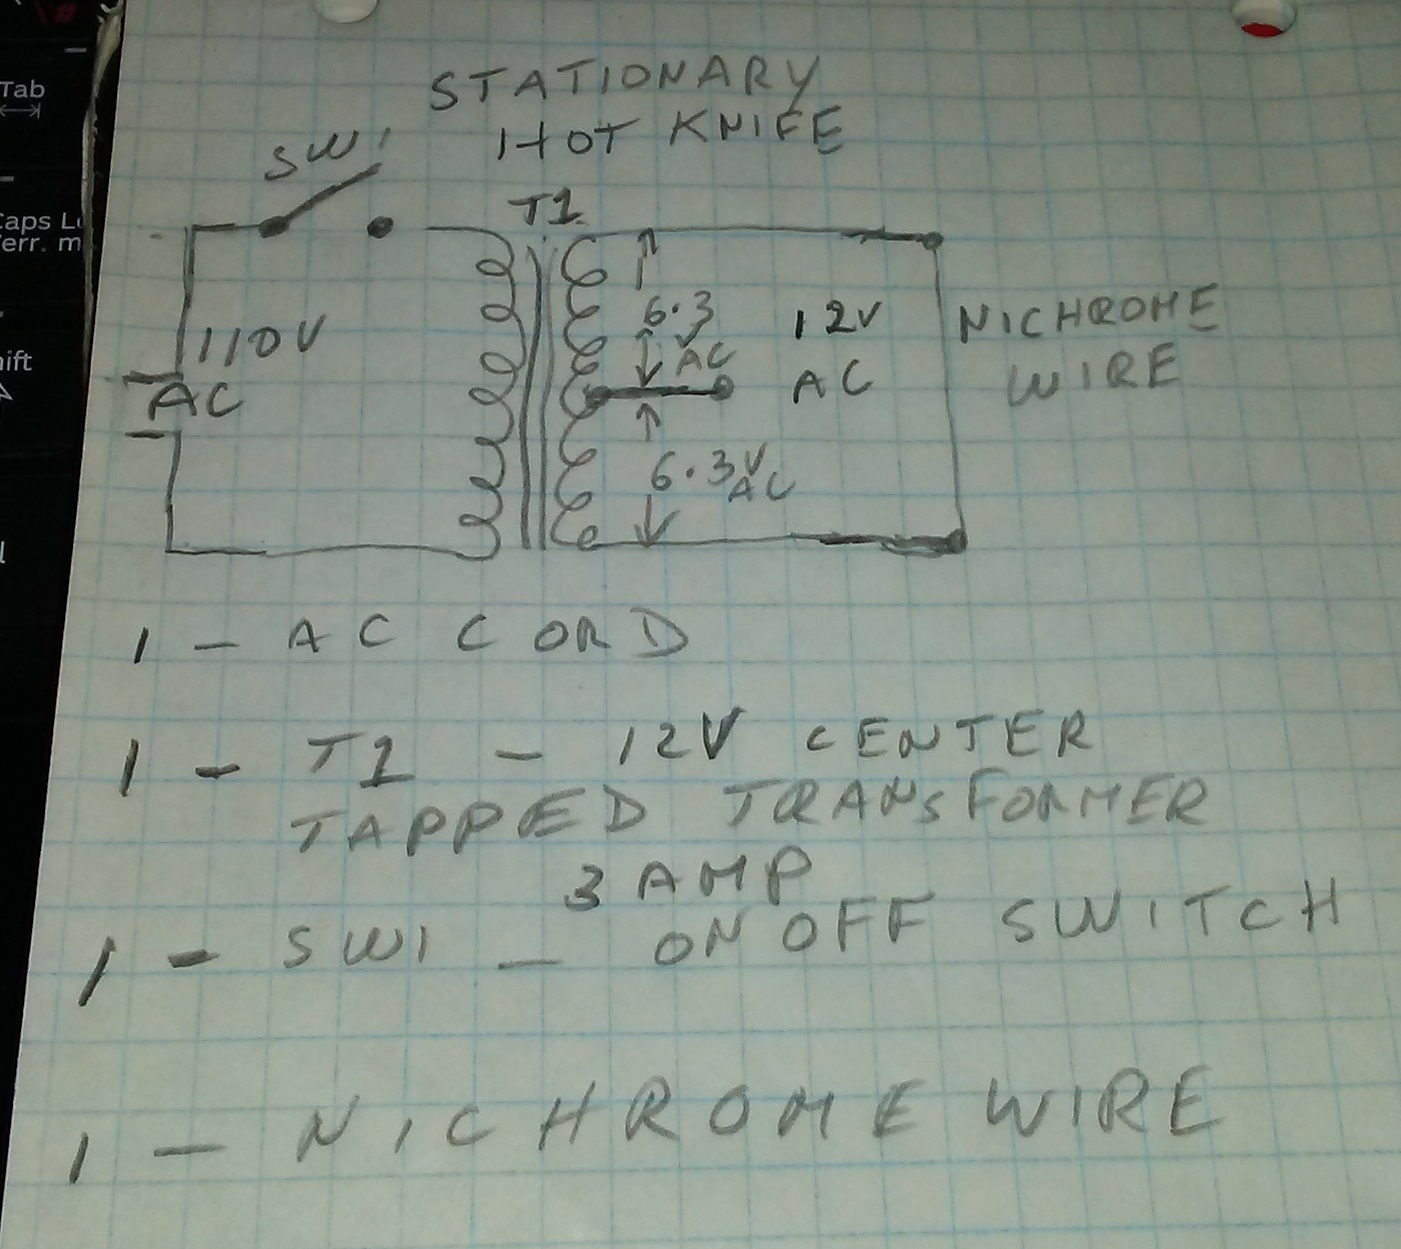 Tab
Caps L
err. m
ift
STATIONARY
HOT KNIFE
SW1
T1
110V
AC
6.3
V
AC
12V
AC
NICHROME
WIRE
6.3V
AC
1 - AC CORD
1 - T1 - 12V CENTER
TAPPED TRANSFORMER
3 AMP
1 - SW1 - ON OFF SWITCH
1 - NICHROME WIRE